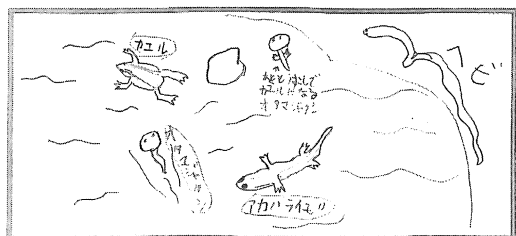 カエル
あと少しで
カエルになる
オタマジャクシ
ヘビ
オタマジャクシ
アカハライモリ